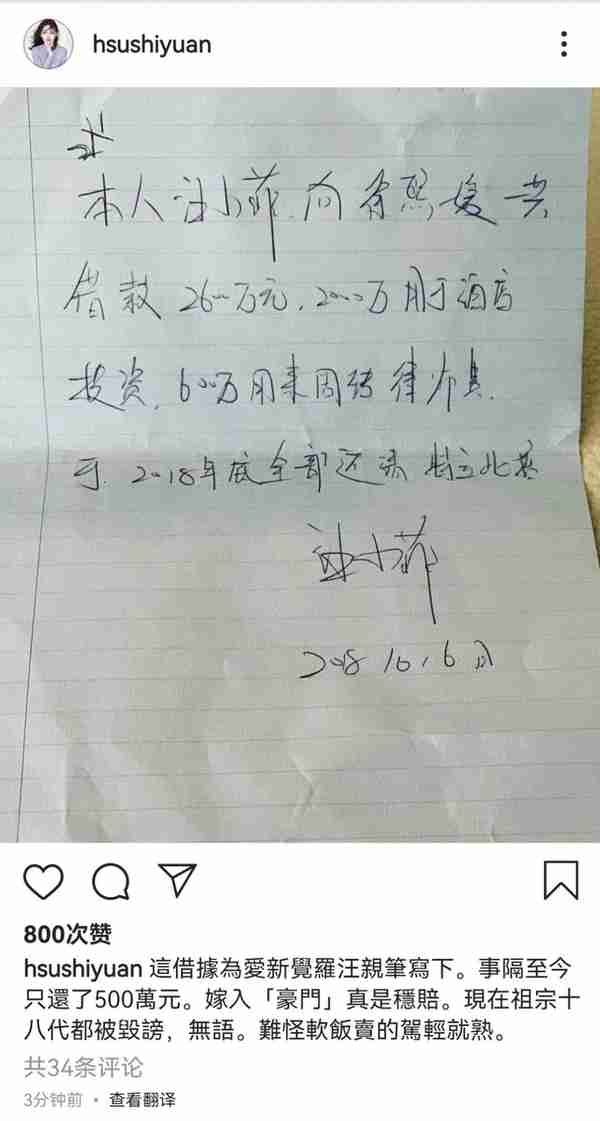 hsushiyuan
本人汪小菲.向徐熙媛共
借款 2600万元.2000万用于酒店
投资.600万用来周转律师费.
于.2018年底全部还清 特立此据
汪小菲
2018 10, 6日
800次赞
hsushiyuan 這借據為愛新覺羅汪親筆寫下。事隔至今
只還了500萬元。嫁入「豪門」真是穩賠。現在祖宗十
八代都被毀謗，無語。難怪軟飯賣的駕輕就熟。
共34条评论
3分钟前 · 查看翻译